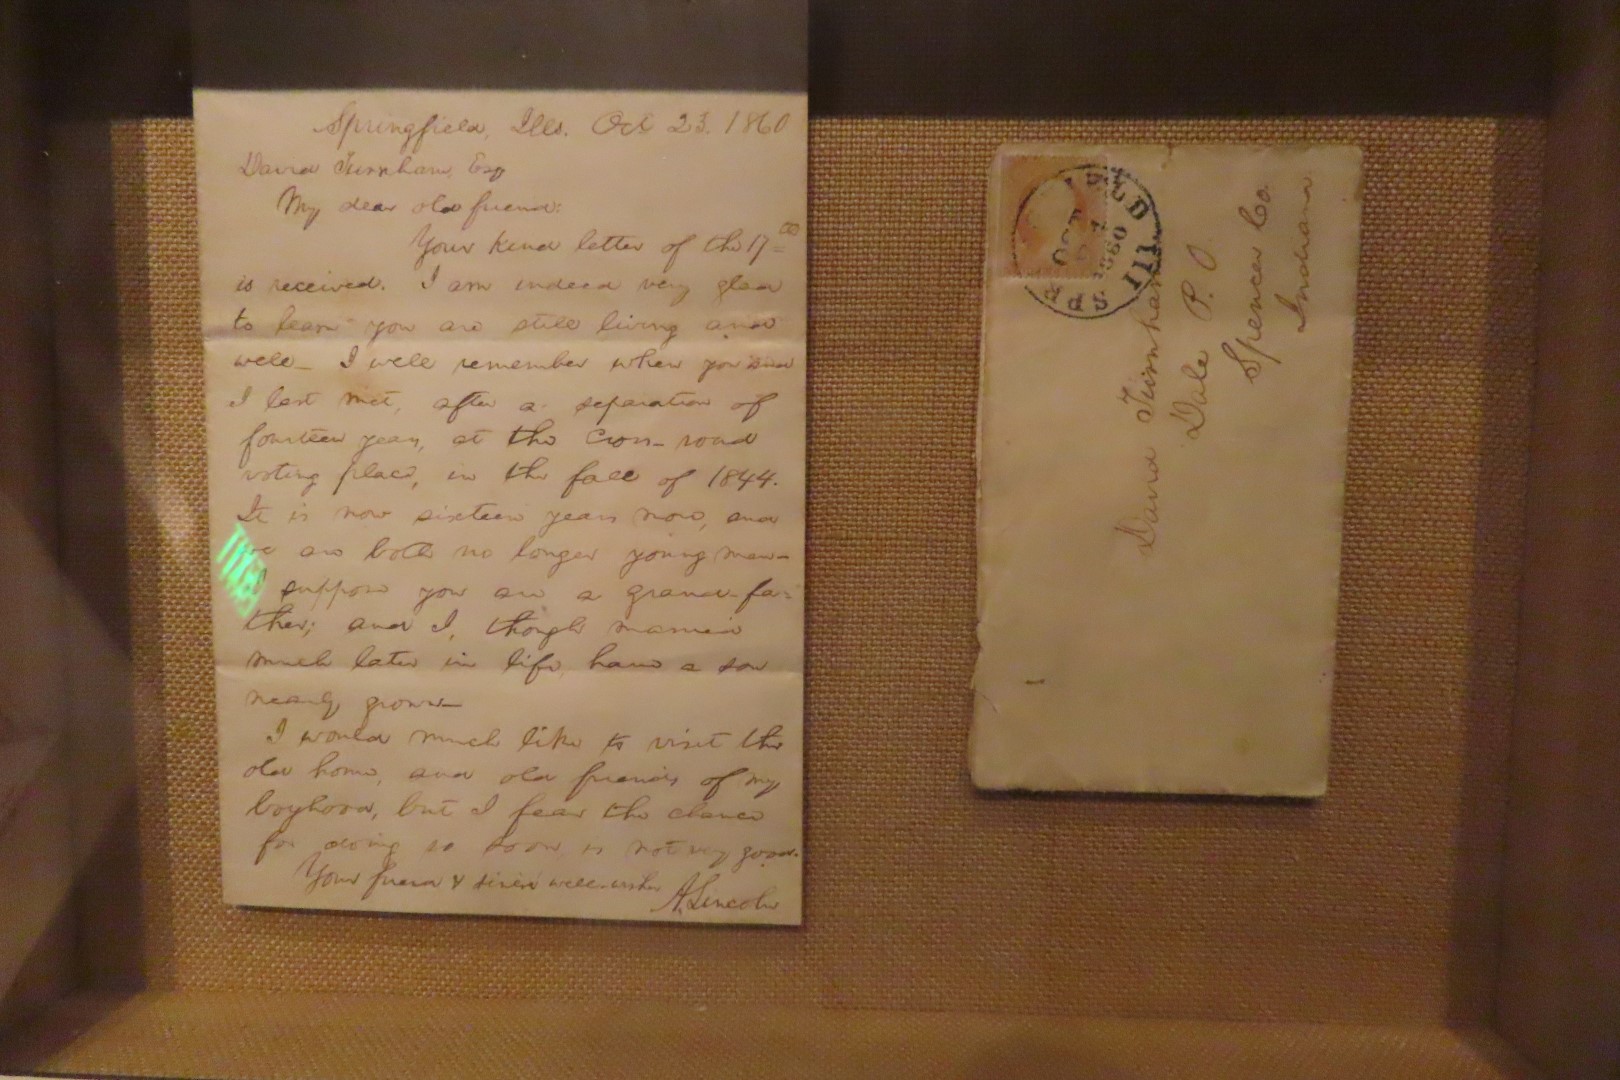 Springfield, Ills. Oct 23. 1860
David Turnham, Esq
My dear old friend:
Your kind letter of the 17th
is received. I am indeed very glad
to learn you are still living and
well_ I well remember when you and
I last met, after a separation of
fourteen years, at the cross-road
voting place, in the fall of 1844.
It is now sixteen years more, and
we are both no longer young men_
suppose you are a grand-fa=
ther; and I, though married
much later in life, have a son
nearly grown_
I would much like to visit the
old home, and old friends of my
boyhood, but I fear the chance
for doing so soon is not very good.
Your friend & sincere well-wisher
A. Lincoln
OCT
1860
Ill.
David Turnham
Dale P.O.
Spencer Co.
Indiana